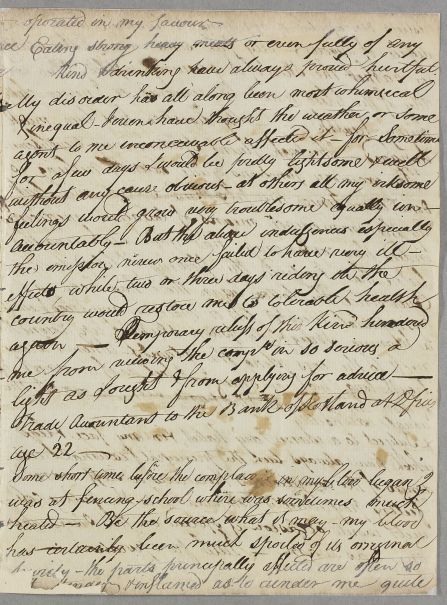 operated in my favour
Eating strong heavy meats or even fully of any
kind & drinking have always proved hurtful
My disorder has all along been most whimsical
& unequal - I even have thought the weather or some
agent to me inconceivable affected it for Sometimes
for a few days I would be pretty lightsome & well
without any cause obvious - at others all my irksome
feelings would grow very troublesome equally un-
accountably - But the above indulgences especially
the omission never once failed to have very ill
effects while two or three days riding in the
country would restore me to tolerable health
again - Temporary reliefs of this kind hindered
me from viewing the complt in so serious a
light as I ought & from applying for advice
Trade Accountant to the Bank of Scotland at
age 22
Some short time before the complaint in my blood began I
was at fencing school where was sometimes much
heated - Be the source what it may - my blood
has certainly been much spoiled of its original
the parts principally affected are often so
& inflamed as to render me quite